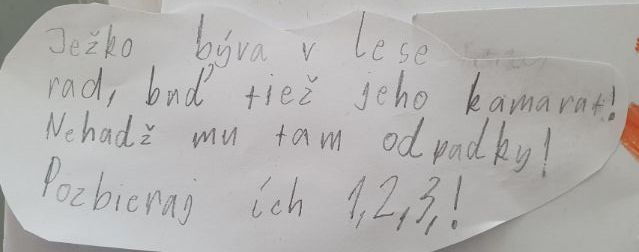 Ježko býva v lese
rad, buď tiež jeho kamarat!
Nehadž mu tam odpadky!
Pozbieraj ích 1,2,3,!